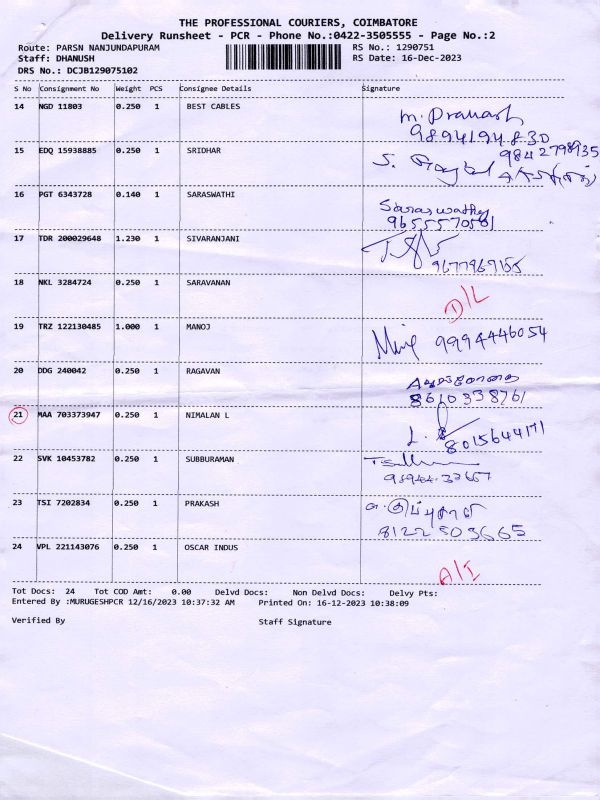 THE PROFESSIONAL COURIERS, COIMBATORE
Delivery Runsheet - PCR - Phone No.:0422-3505555 - Page No.:2
Route: PARSN NANJUNDAPURAM RS No.: 1290751
Staff: DHANUSH RS Date: 16-Dec-2023
DRS No.: DCJB129075102
S No Consignment No Weight PCS Consignee Details Signature
14 NGD 11803 0.250 1 BEST CABLES
M. Prakash
9894194830
15 EDQ 15938885 0.250 1 SRIDHAR
9842798935
16 PGT 6343728 0.140 1 SARASWATHI
Saraswathy
9655570561
17 TDR 200029648 1.230 1 SIVARANJANI
9677969155
18 NKL 3284724 0.250 1 SARAVANAN
D/L
19 TRZ 122130485 1.000 1 MANOJ
9994446054
20 DDG 240042 0.250 1 RAGAVAN
8610338761
21 MAA 703373947 0.250 1 NIMALAN L
8015644171
22 SVK 10453782 0.250 1 SUBBURAMAN
23 TSI 7202834 0.250 1 PRAKASH
8122503665
24 VPL 221143076 0.250 1 OSCAR INDUS
A/I
Tot Docs: 24 Tot COD Amt: 0.00 Delvd Docs: Non Delvd Docs: Delvy Pts:
Entered By :MURUGESHPCR 12/16/2023 10:37:32 AM Printed On: 16-12-2023 10:38:09
Verified By Staff Signature